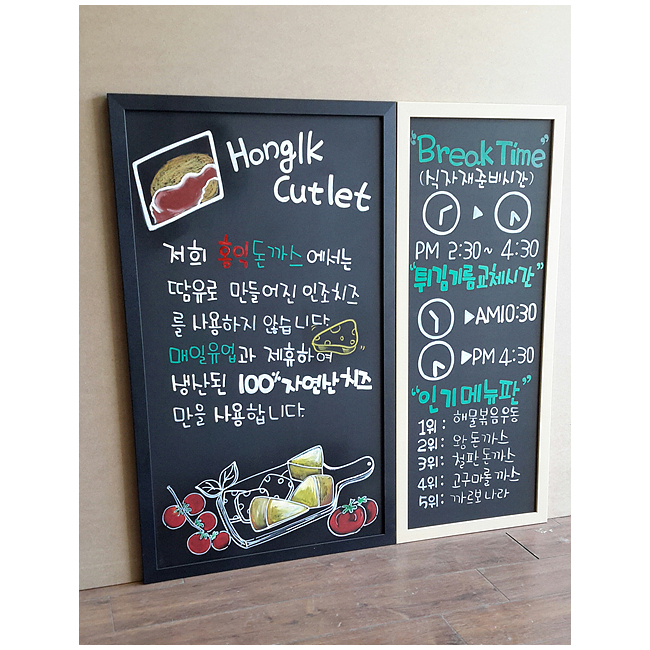 HongIk
Cutlet
저희 홍익돈까스에서는
땀유로 만들어진 인조치즈
를 사용하지 않습니다
매일유업과 제휴하여
생산된 100% 자연산치즈
만을 사용합니다.
“Break Time”
(식자재준비시간)
PM 2:30~ 4:30
“튀김기름교체시간”
▶AM10:30
▶PM 4:30
“인기메뉴판”
1위: 해물볶음우동
2위: 왕돈까스
3위: 철판돈까스
4위: 고구마롤까스
5위: 까르보나라